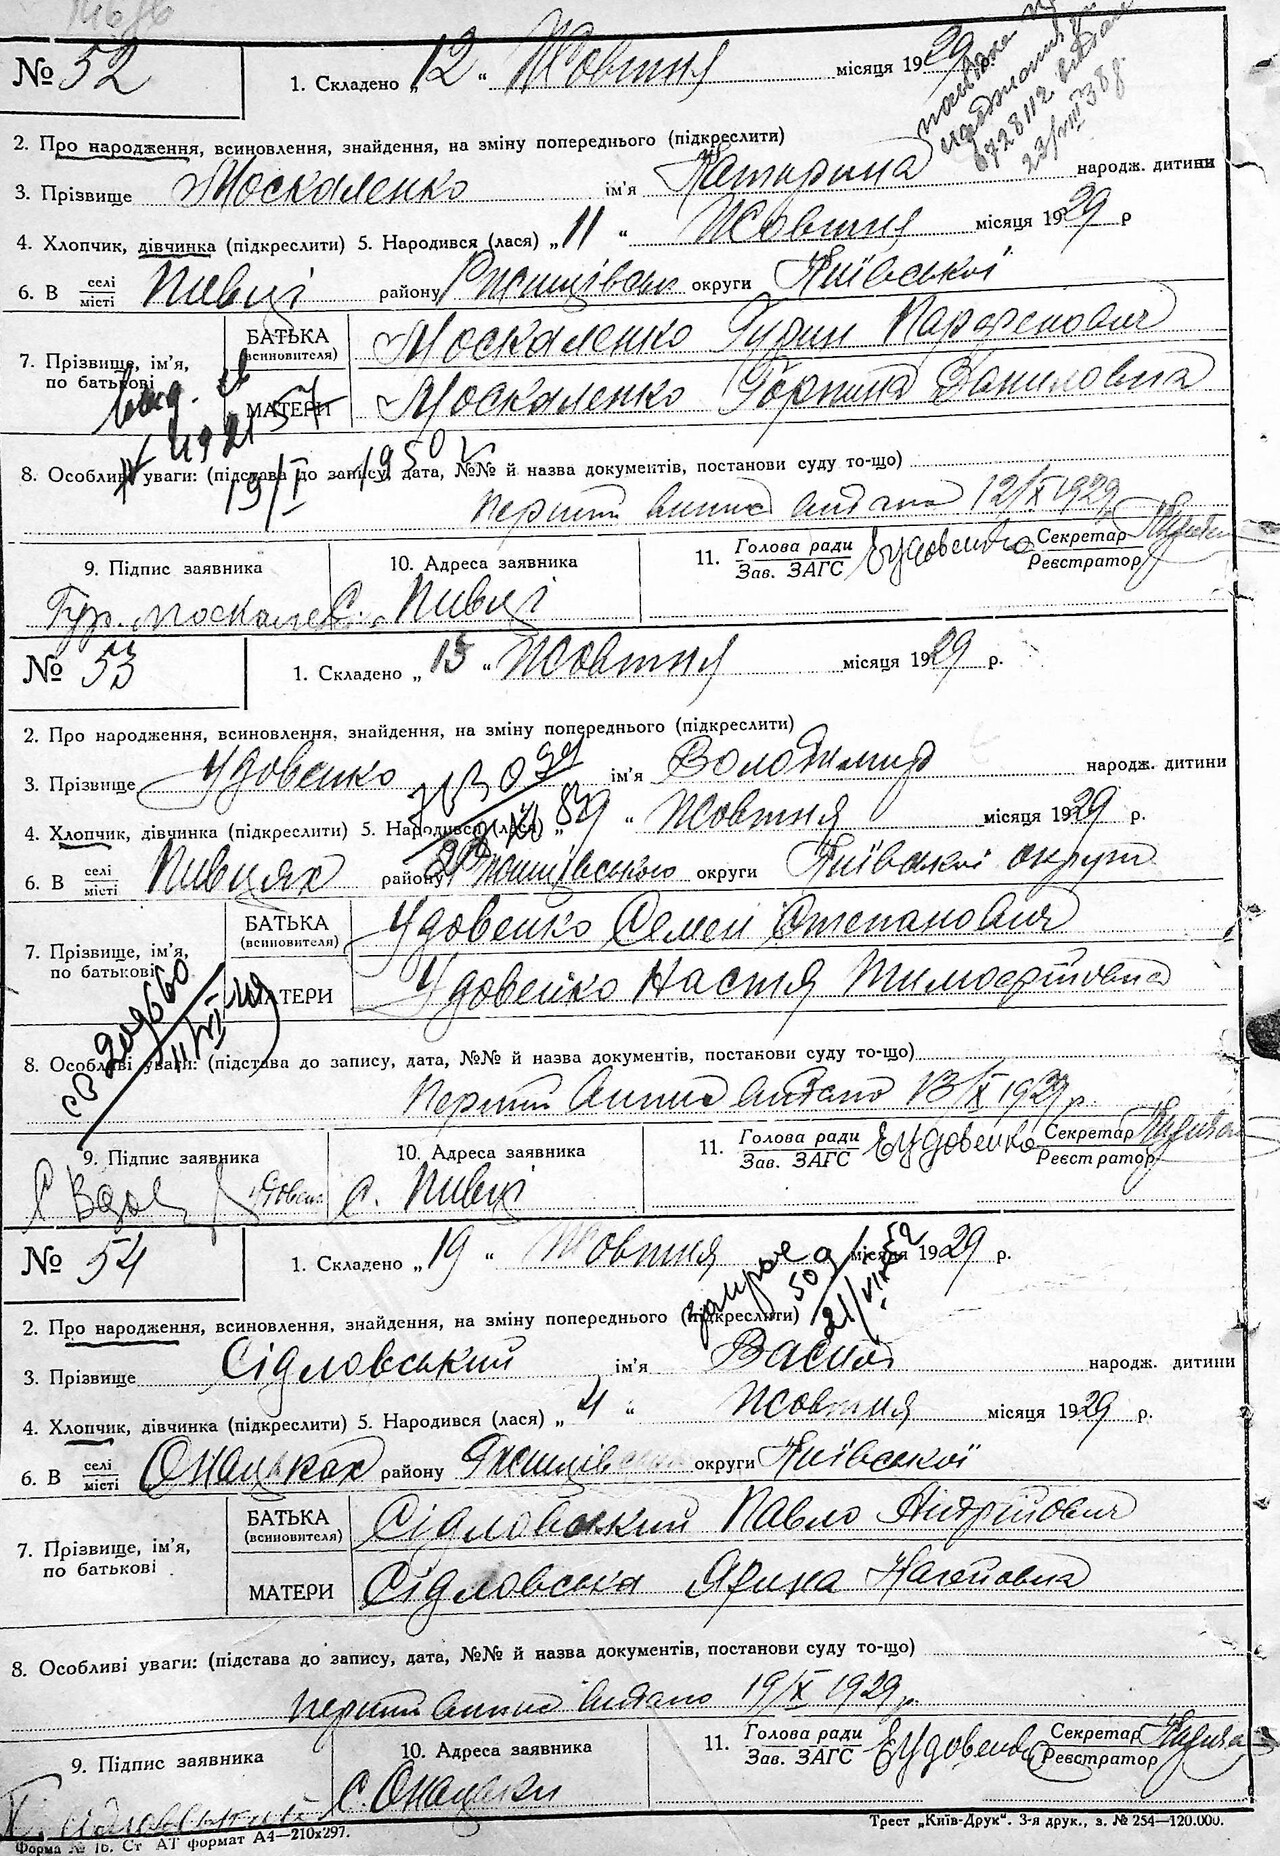 № 52
1. Складено „ 12 " Жовтня місяця 1929
2. Про народження, всиновлення, знайдення, на зміну попереднього (підкреслити)
3. Прізвище Москаленко ім'я Катерина народж. дитини
4. Хлопчик, дівчинка (підкреслити) 5. Народився (лася) „ 11 " Жовтня місяця 1929 р
6. В селі місті Пивці району Ржищівськ округи Київської
7. Прізвище, ім'я, по батькові
БАТЬКА (всиновителя) Москаленко Гурин Парфенович
МАТЕРИ Москаленко Горпина Даниловна
8. Особливі уваги: (підстава до запису, дата, №№ й назва документів, постанови суду то-що)
19/I 1950
перший випис видано 12/X 1929
9. Підпис заявника
10. Адреса заявника
11. Голова ради Зав. ЗАГС ЕУдовенко Секретар Реєстратор
Гур. Москален С. Пивці
№ 53
1. Складено „ 13 " Жовтня місяця 1929 р.
2. Про народження, всиновлення, знайдення, на зміну попереднього (підкреслити)
3. Прізвище Удовенко ім'я Володимир народж. дитини
4. Хлопчик, дівчинка (підкреслити) 5. Народився (лася) „ 9 " Жовтня місяця 1929 р.
6. В селі місті Пивцях району Ржищівського округи Київської округи
7. Прізвище, ім'я, по батькові
БАТЬКА (всиновителя) Удовенко Семен Степанович
МАТЕРИ Удовенко Настя Тимофіївна
СВ 209660
8. Особливі уваги: (підстава до запису, дата, №№ й назва документів, постанови суду то-що)
перший випис видано 13/X 1929 р.
9. Підпис заявника
10. Адреса заявника
11. Голова ради Зав. ЗАГС ЕУдовенко Секретар Реєстратор
с. Пивці
№ 54
1. Складено „ 19 " Жовтня місяця 1929 р.
509
21/VII 52
2. Про народження, всиновлення, знайдення, на зміну попереднього (підкреслити)
3. Прізвище Сідловський ім'я Василь народж. дитини
4. Хлопчик, дівчинка (підкреслити) 5. Народився (лася) „ 4 " Жовтня місяця 1929 р.
6. В селі місті Онацьках району Ржищівськ округи Київської
7. Прізвище, ім'я, по батькові
БАТЬКА (всиновителя) Сідловський Павло Андрійович
МАТЕРИ Сідловська Ярина
8. Особливі уваги: (підстава до запису, дата, №№ й назва документів, постанови суду то-що)
перший випис видано 19/X 1929 р.
9. Підпис заявника
10. Адреса заявника
11. Голова ради Зав. ЗАГС ЕУдовенко Секретар Реєстратор
П. Сидловський с. Онацьки
Форма № 16. Ст АТ формат А4—210х297.
Трест „Київ-Друк". 3-я друк., з. № 254—120.000.